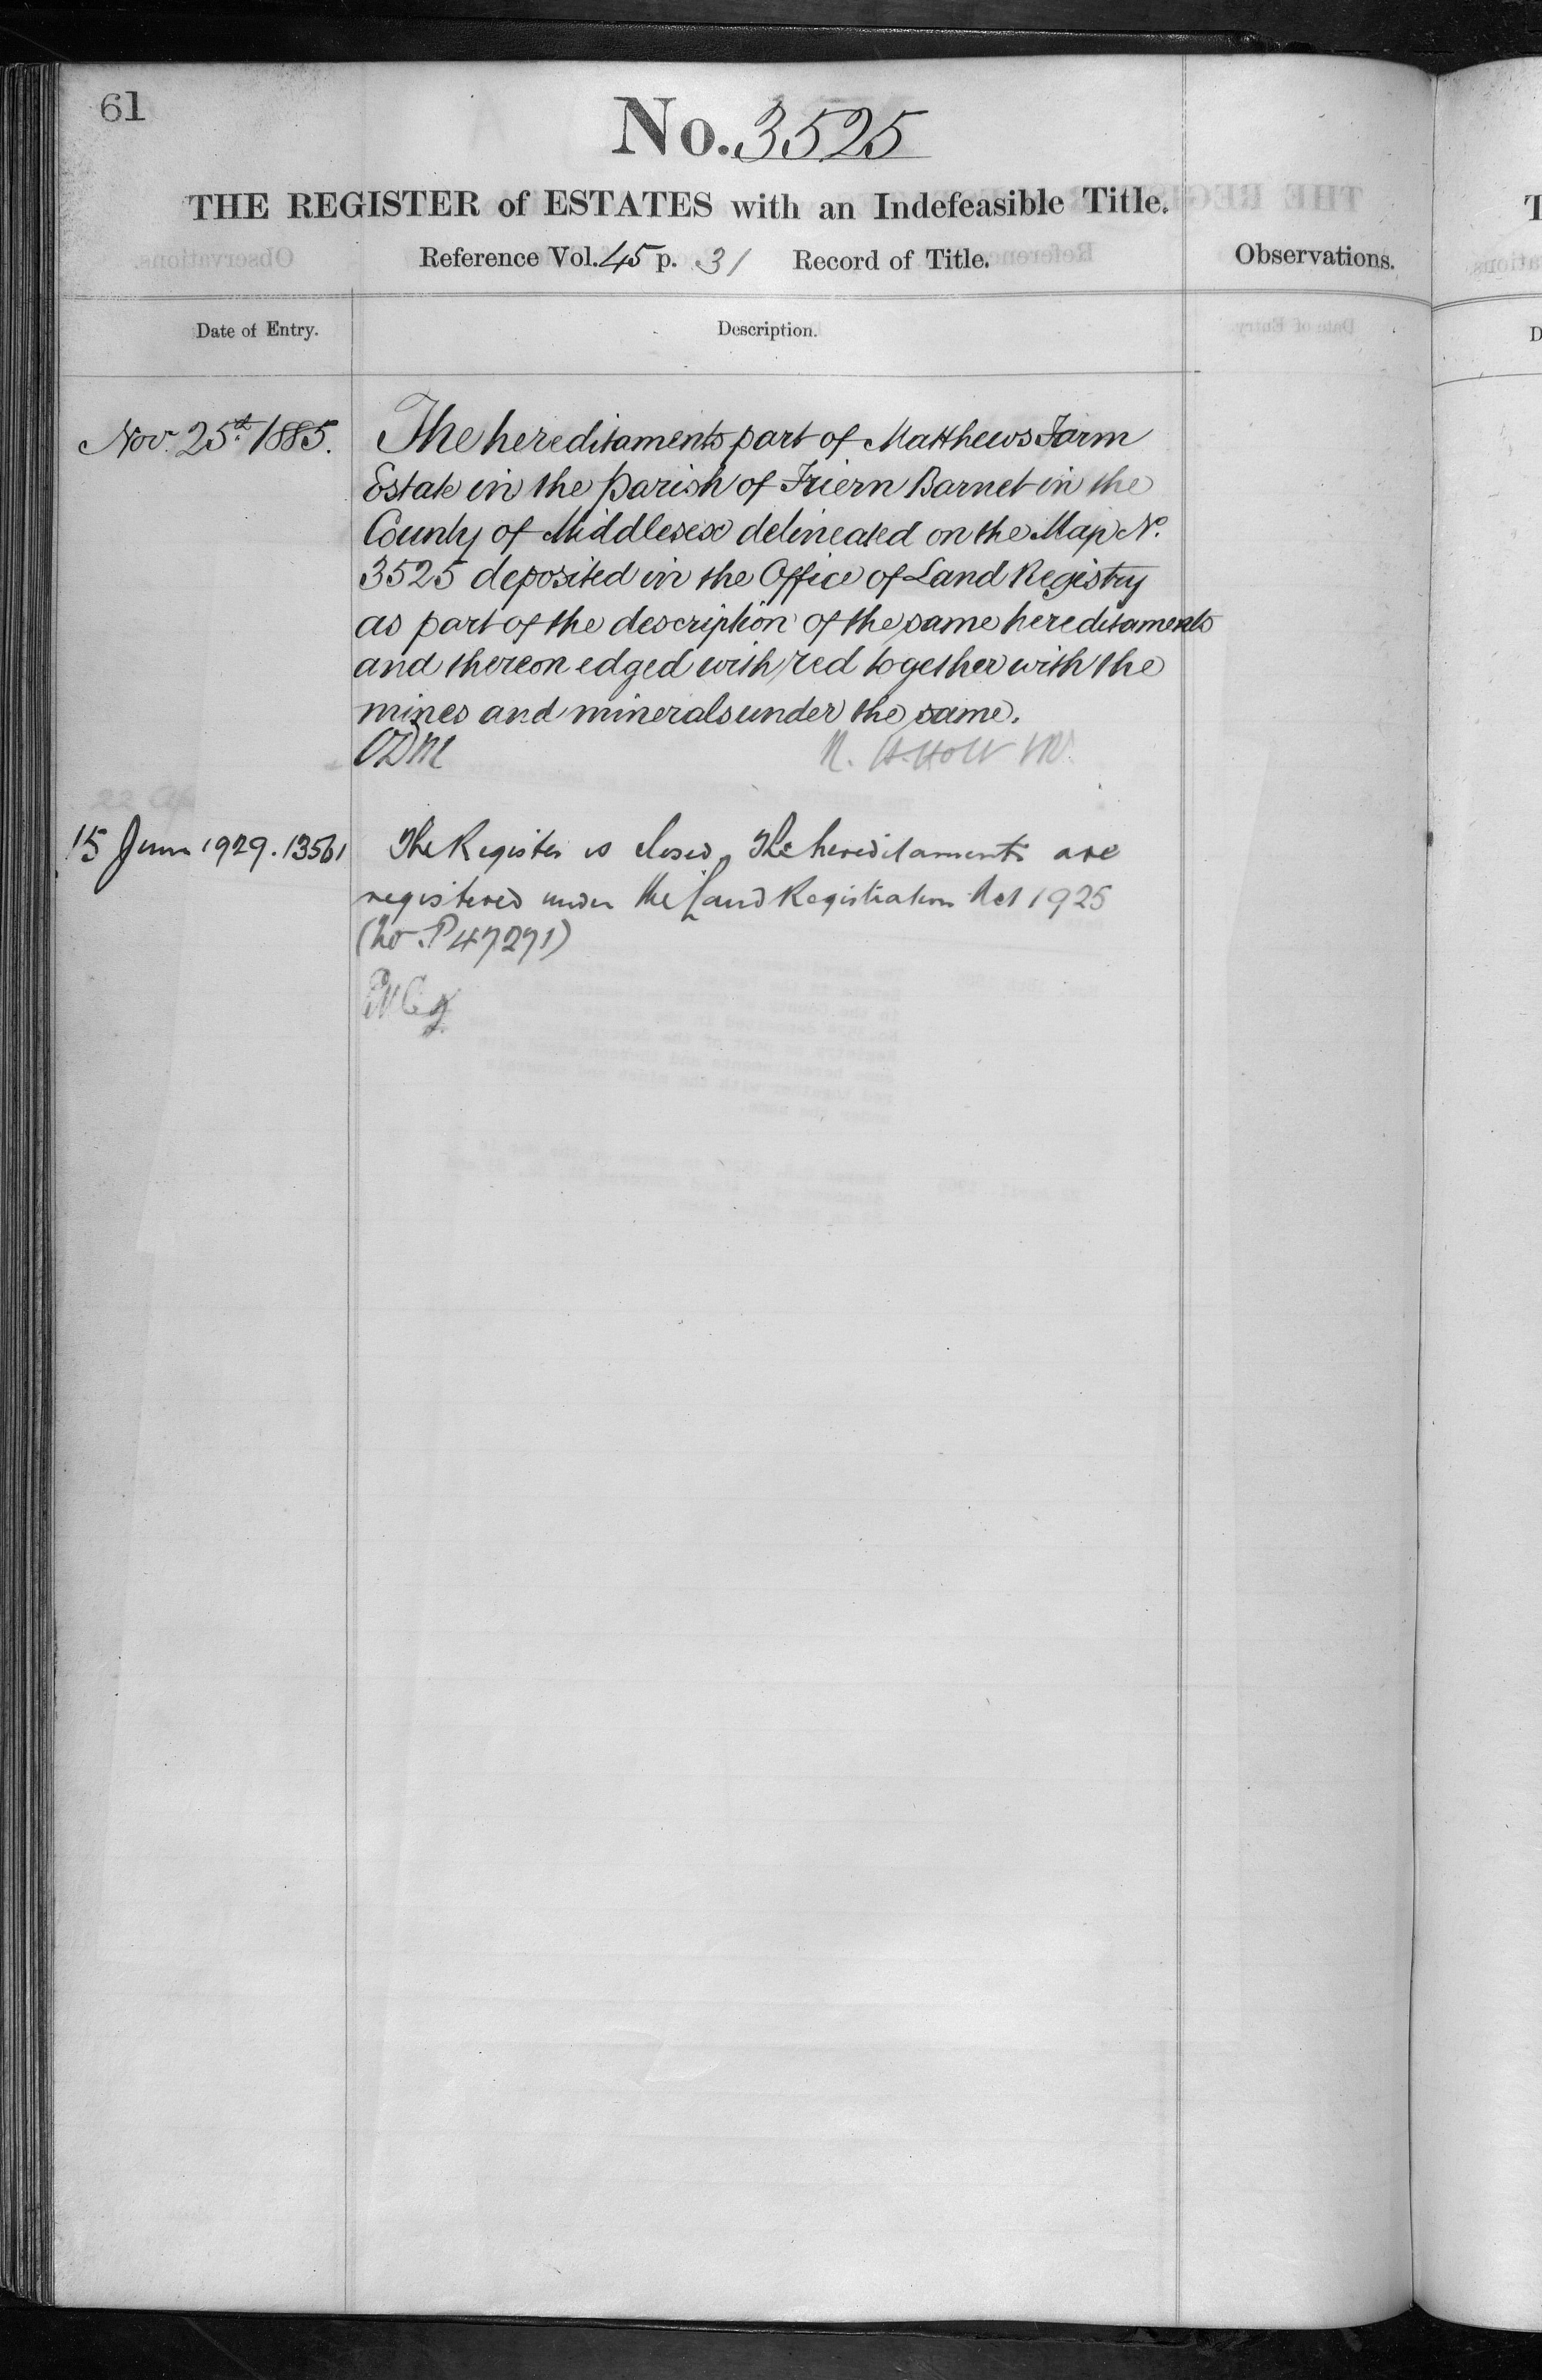 61
No. 3525
THE REGISTER of ESTATES with an Indefeasible Title.
Reference Vol. 45 p. 31 Record of Title.
Observations.
Date of Entry.
Description.
Nov. 25th 1885.
The hereditaments part of Matthews Farm
Estate in the parish of Friern Barnet in the
County of Middlesex delineated on the Map No.
3525 deposited in the Office of Land Registry
as part of the description of the same hereditaments
and thereon edged with red together with the
mines and minerals under the same.
15 June 1929. 13561
The Register is closed. The hereditaments are
registered under the Land Registration Act 1925
(No. P47271)